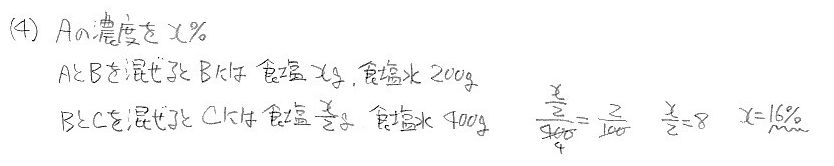 (4) Aの濃度を x%
AとBを混ぜると Bには 食塩 xg, 食塩水 200g
BとCを混ぜると Cには 食塩 x/2 g 食塩水 400g (x/2)/400 = 2/100 x/2 = 8 x = 16%